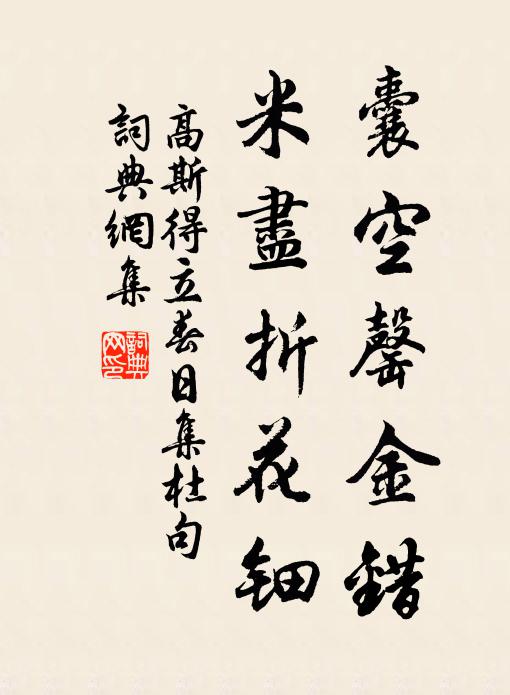 囊空罄金錯
米盡折花鈿
高斯得立春日集杜句
詞典網集
詞典网印